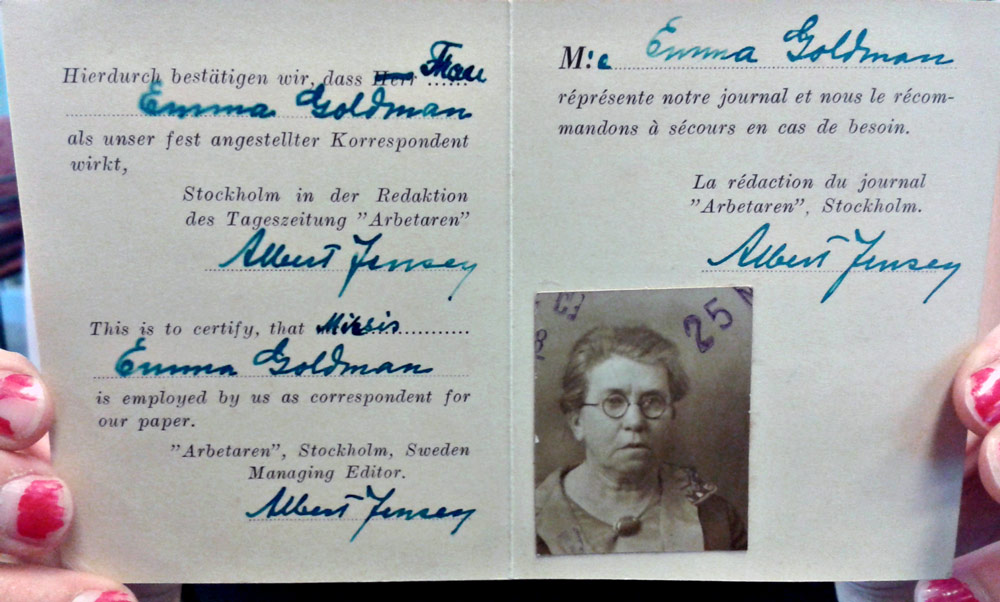 Hierdurch bestätigen wir, dass Herr Frau
Emma Goldman
als unser fest angestellter Korrespondent
wirkt,
Stockholm in der Redaktion
des Tageszeitung "Arbetaren"
Albert Jensen
This is to certify, that Missis
Emma Goldman
is employed by us as correspondent for
our paper.
"Arbetaren", Stockholm, Sweden
Managing Editor.
Albert Jensen
M:e Emma Goldman
réprésente notre journal et nous le récom-
mandons à sécours en cas de besoin.
La rédaction du journal
"Arbetaren", Stockholm.
Albert Jensen
25